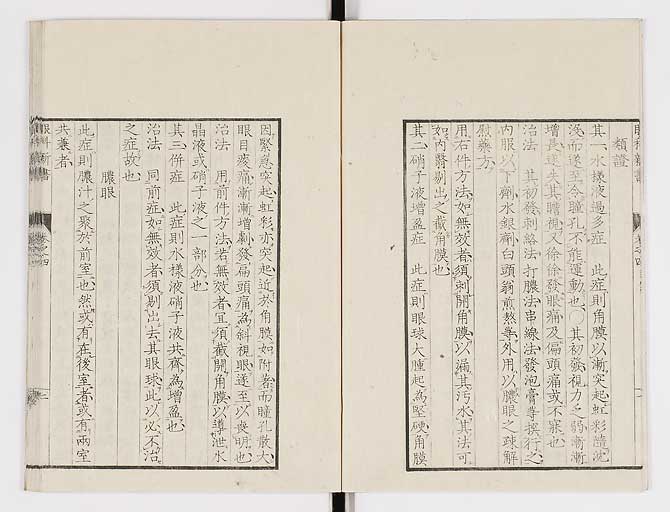 類證
其一、水樣液過多症 此症則角膜以漸突起、虹彩隨沈
淺、而遂至令瞳孔不能運動也、○其初發、視力之弱漸漸
增長、遂失其瞻視、又徐徐發眼痛及偏頭痛、或不寐也、
治法 其初發、刺絡法、打膿法、串線法、發泡膏等撰行之、
内服以下劑、水銀劑、白頭翁煎熬等、外用以膿眼之疎解
慰藥方、
用右件方法、如無效者、須刺開角膜、以漏其汚水、其法可
如内醫剔出之截角膜、
其二、硝子液增盈症 此症則眼球大腫起、爲堅硬、角膜
因緊急突起、虹彩亦突起近於角膜、如附着、而瞳孔散大、
眼目疼痛漸漸增劇、發偏頭痛、爲斜視眼、遂至以喪明也、
治法 用前件方法、若無效者、宜須截開角膜、以導泄水
晶液或硝子液之一部分也、
其三、併症 此症則水樣液硝子液共齊爲增盈也、
治法 同前症、如無效者、須剔出去其眼球、此以必不治
之症故也、
膿眼
此症則膿汁之聚於前室也、然或有在後室者、或有兩室
共兼者、
眼科新書
卷之四